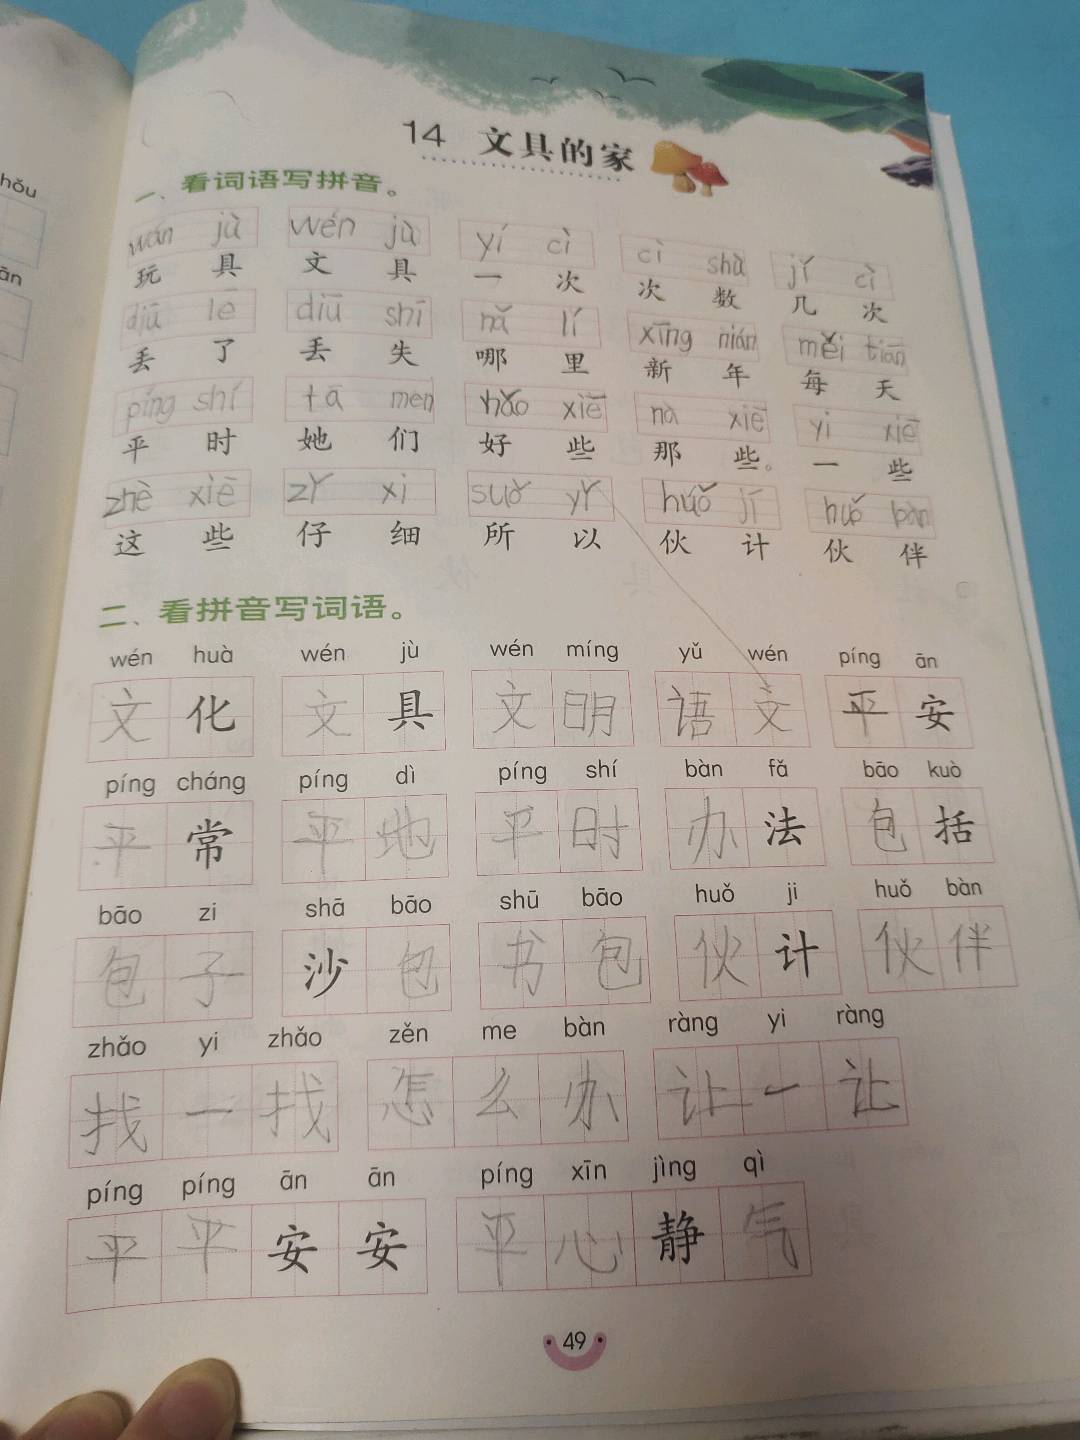 hǒu
ān
14 文具的家
一、看词语写拼音。
wán jù wén jù yí cì cì shù jǐ cì
玩具 文具 一次 次数 几次
diū lē diū shī nǎ lǐ xīng nián měi tiān
丢了 丢失 哪里 新年 每天
píng shí tā men hǎo xiē nà xiē yì xiē
平时 她们 好些 那些。 一些
zhè xiē zǐ xì suǒ yǐ huǒ jī huǒ bàn
这些 仔细 所以 伙计 伙伴
二、看拼音写词语。
wén huà wén jù wén míng yǔ wén píng ān
文化 文具 文明 语文 平安
píng cháng píng dì píng shí bàn fǎ bāo kuò
平常 平地 平时 办法 包括
bāo zi shā bāo shū bāo huǒ ji huǒ bàn
包子 沙包 书包 伙计 伙伴
zhǎo yi zhǎo zěn me bàn ràng yi ràng
找一找 怎么办 让一让
píng píng ān ān píng xīn jìng qì
平平安安 平心静气
49